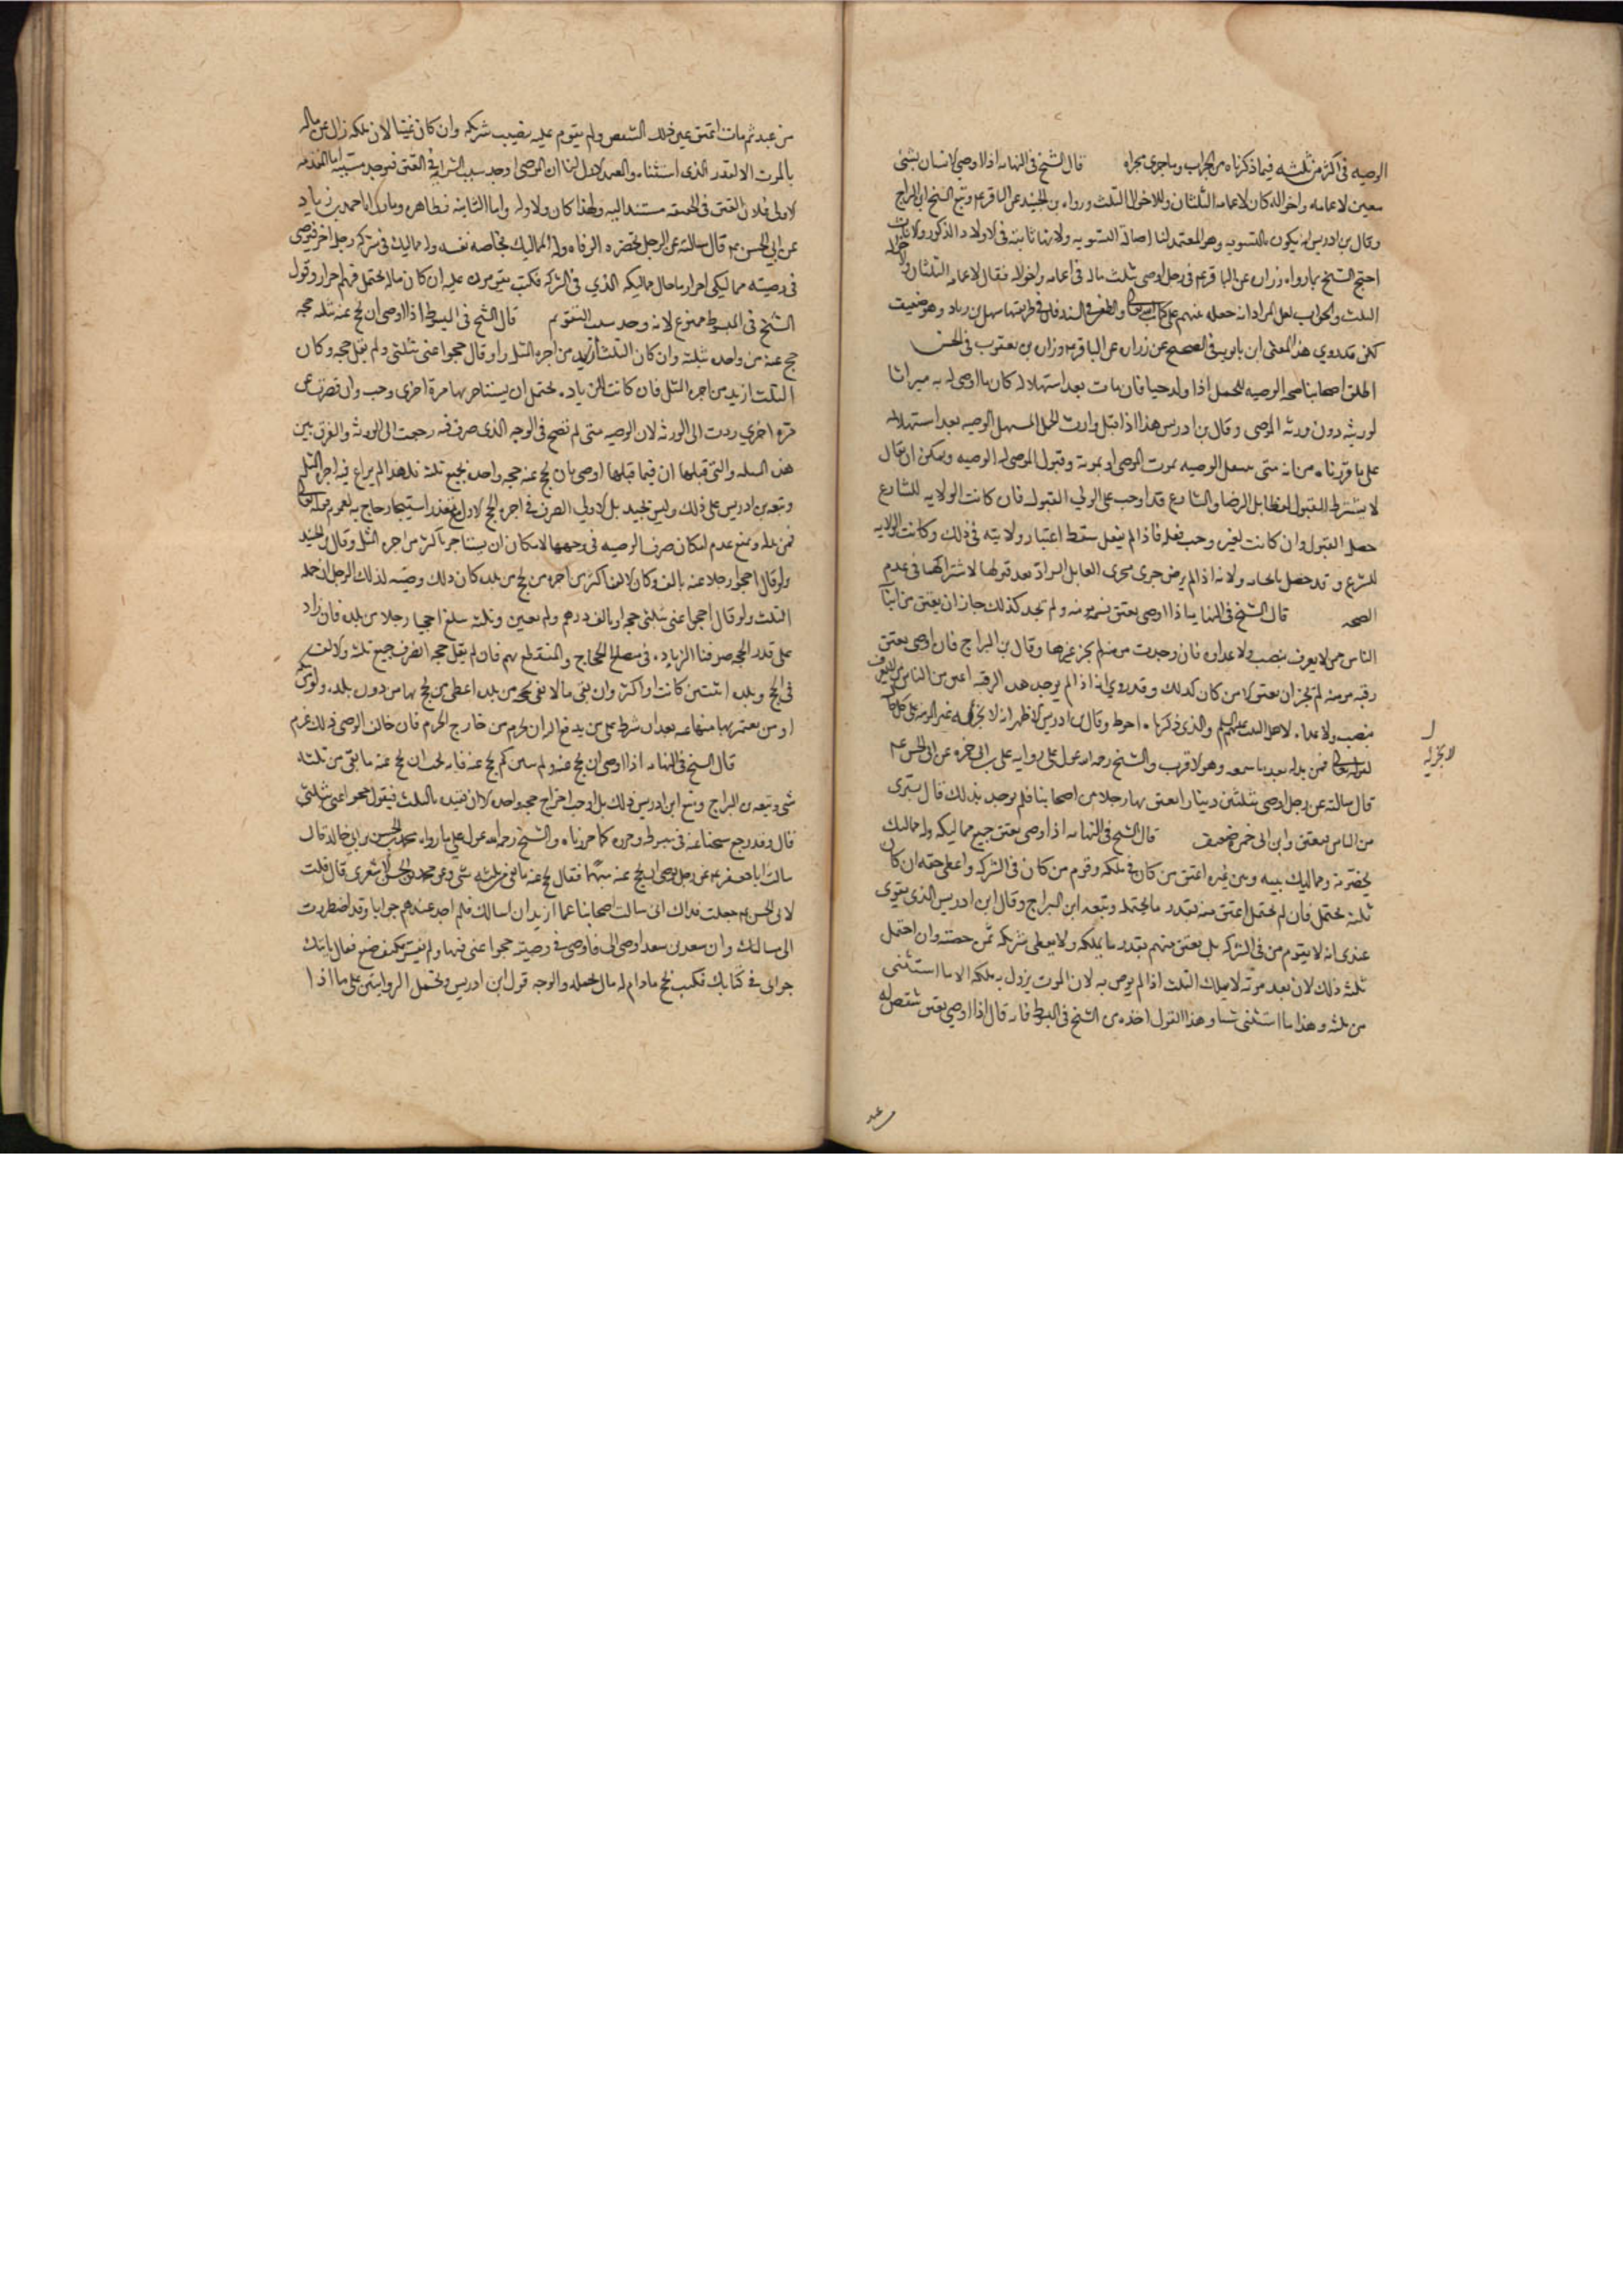 الوصيه في اكثر من ثلثه فيما ذكرناه من الجراب وما جرى مجراه قال الشيخ في النهايه اذا اوصى لانسان بشئ
معين لاعمامه واخواله كان لاعمامه الثلثان وللاخوال الثلث ورواه بن الجنيد عن الباقر عم وتبع الشيخ ابن البراج
وقال بن ادريس يكون بالتسويه وهو المعتمد لنا اصالة التسويه ولانها ثابته في الاولاد الذكور والاناث
احتج الشيخ بما رواه زراره عن الباقر عم في رجل اوصى بثلث ماله في اعمامه واخواله فقال لاعمامه الثلثان ولاخواله
الثلث والجواب لعل المراد انه جعله عنهم على كتاب الله تعالى والطعن في السند فان في طريقها سهل بن زياد وهو ضعيف
لكن قد روي هذا المعنى ابن بابويه في الصحيح عن زراره عن الباقر عم وزراره بن يعقوب في الحسن
اطلق اصحابنا صحه الوصيه للحمل اذا ولد حيا فان مات بعد استهلاله كان ما اوصى له به ميراثا
لورثته دون ورثه الموصي وقال بن ادريس هذا اذا قبل وارث الحمل المستهل الوصيه بعد استهلاله
على ما قررناه من انه متى تنتقل الوصيه بموت الموصي او بموته وقبول الموصى له الوصيه ويمكن ان يقال
لا يشترط القبول لفظا بل الرضا والشارع قد اوجب على الولي القبول فان كانت الولايه للشارع
حصل القبول وان كانت لغيره وجب فعله فاذا لم يفعل سقط اعتبار ولايته في ذلك وكانت الولايه
للشرع وقد حصل ولانه اذا لم يرض جرى مجرى القابل الراد بعد قبولها لاشتراكهما في عدم
الصحه قال الشيخ في النهايه اذا اوصى بعتق نسمه مومنه ولم يجد كذلك جاز ان يعتق من ابناء
الناس ممن لا يعرف بنصب ولا عداوه فان وجدت مومنه لم يجز غيرها وقال بن البراج فان اوصى بعتق
رقبه مومنه لم يجز ان يعتق الا من كان كذلك وقد روي انه اذا لم يوجد هذه الرقبه اعتق من الناس من لا يعرف
بنصب ولا عداوه لاهل البيت عليهم السلم والذي ذكرناه احوط وقال بن ادريس الاظهر انه لا يجزيه غير المومنه على كل حال
لقوله تعالى فمن بدله بعد ما سمعه وهو الاقرب والشيخ رحمه الله عول على روايه علي بن ابي حمزه عن ابي الحسن عم
لا يجزيه
قال سالته عن رجل اوصى بثلثين دينارا يعتق بها رجلا من اصحابنا فلم يوجد بذلك قال يشترى
من الناس فيعتق وابن ابي حمزه ضعيف قال الشيخ في النهايه اذا اوصى بعتق جميع مماليكه وله مماليك
يخصونه ومماليك بينه وبين غيره اعتق من كان في ملكه وقوم من كان في الشركه واعطى حقه ان كان
ثلثه يحتمل فان لم يحتمل اعتق منه بقدر ما يحتمله وتبعه ابن البراج وقال ابن ادريس الذي يقوى
عندى انه لا يقوم من في الشركه بل يعتق منهم بقدر ما يملكه ولا يعطى شريكه ثمن حصته وان احتمل
ثلثه ذلك لان بعد موته لا يملك الثلث اذا لم يوص به لان الموت يزول به ملكه الا ما استثنى
من ثلثه وهذا ما استثنى شيا وهذا القول اخذه من الشيخ في المبسوط فانه قال اذا اوصى بعتق شقص له
من عبد
من عبد ثم مات اعتق عين ذلك الشقص ولم يقوم عليه نصيب شريكه وان كان غنيا لان ملكه زال عن ماله
بالموت الا القدر الذي استثناه والمعتمد الاول لنا ان الموصي اوجد سبب السرايه في العتق فيوجد مسببه اما المقدمه
الاولى فلان العتق في الحقيقه مستند اليه ولهذا كان ولاوه له واما الثانيه فظاهره وما رواه احمد بن زياد
عن ابي الحسن عم قال سالته عن الرجل يحضره الوفاه وله المماليك بخاصه نفسه وله مماليك في شركه رجل اخر فيوصي
في وصيته مماليكي احرار ما حال مماليكه الذي في الشركه فكتب يقومون عليه ان كان ماله يحتمل فهم احرار وقول
الشيخ في المبسوط ممنوع لانه وجد سبب التقويم قال الشيخ في المبسوط اذا اوصى ان يحج عنه بثلثه حجه
حج عنه من واحده بثلثه وان كان الثلث ازيد من اجره المثل ولو قال حجوا عني بثلثي ولم يقل حجه وكان
الثلث ازيد من اجره المثل فان كانت الزياده يحتمل ان يستاجر بها مره اخرى وجب وان قصرت عن
مره اخرى ردت الى الورثه لان الوصيه متى لم تصح في الوجه الذي صرف فيه رجعت الى الورثه والفرق بين
هذه المسله والتي قبلها ان فيما قبلها اوصى بان يحج عنه حجه واحده بجميع ثلثه فلهذا لم يراع فيه اجره المثل
وتبعه بن ادريس على ذلك وليس بجيد بل الاولى الصرف في اجره الحج الاول استيجار حاج به لعموم قوله تعالى
فمن بدله ويمنع عدم امكان صرف الوصيه في وجهها لامكان ان يستاجر باكثر من اجره المثل وقال بن الجنيد
ولو قال احجوا رجلا عنه بالف وكان الالف اكثر من اجره من يحج من بلده كان ذلك وصيه لذلك الرجل ان حمله
الثلث ولو قال احجوا عني بثلثي حجه او بالف درهم ولم يعين وثلثه يبلغ احجيا رجلا من بلده فان زاد
على قدر الحجه صرفنا الزياده في مصالح الحجاج والمنقطع بهم فان لم يقل حجه انصرف جميع ثلثه والالف
في الحج من بلده اثنتين كانت او اكثر وان بقي ما لا يفي بحجه من بلده اعطى من يحج بها من دون بلده
او من يعتمر بها منها عنه بعد ان شرط على من يدفع اليه ان يحرم من خارج الحرم فان خالف الوصي ذلك غرم
قال الشيخ في النهايه اذا اوصى ان يحج عنه ولم يبين كم يحج عنه فانه يجب ان يحج عنه ما بقي من ثلثه
شي وتبعه بن البراج ومنع ابن ادريس ذلك بل اوجب اخراج حجه واحده الا ان يقيد بالثلث فيقول حجوا عني بثلثي
قال وقد رجع شيخنا عنه في مبسوطه وحرره كما حررناه والشيخ رحمه الله عول على ما رواه محمد بن الحسين بن ابي خالد قال
سالت ابا جعفر عم عن رجل اوصى ان يحج عنه مبهما فقال يحج عنه ما بقي من ثلثه شي وعن محمد بن الحسن الاشعري قال قلت
لابي الحسن عم جعلت فداك اني سالت اصحابنا عما اريد ان اسالك فلم اجد عندهم جوابا وقد اضطررت
الى مسالتك وان سعد بن سعد اوصى الي فاوصى في وصيته حجوا عني مبهما ولم يفسر فكيف نصنع فقال ياتيك
جوابي في كتابك فكتب يحج ما دام له مال يحمله والوجه قول ابن ادريس ويحتمل الروايتين على ما اذا